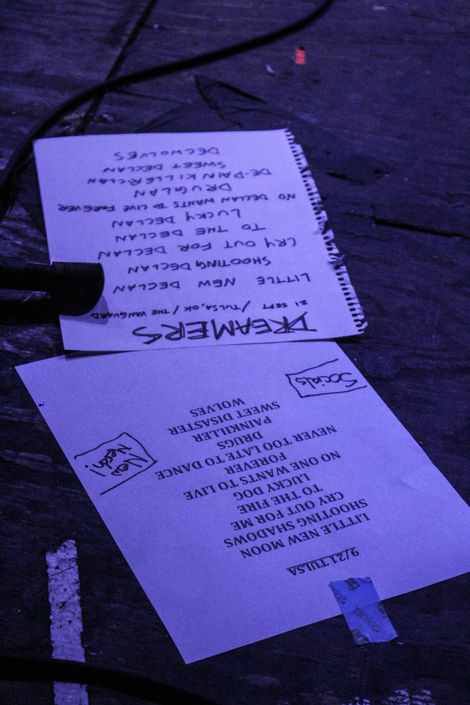 DREAMERS
21 SEPT / TULSA, OK / THE VANGUARD
LITTLE NEW DECLAN
SHOOTING DECLAN
CRY OUT FOR DECLAN
TO THE DECLAN
LUCKY DECLAN
NO DECLAN WANTS TO LIVE FOREVER
DRUGLAN
DE-PAINKILLER-CLAN
SWEET DECLAN
DECWOLVES
9/21 TULSA
LITTLE NEW MOON
SHOOTING SHADOWS
CRY OUT FOR ME
TO THE FIRE
LUCKY DOG
NO ONE WANTS TO LIVE
FOREVER
NEVER TOO LATE TO DANCE
DRUGS
PAINKILLER
SWEET DISASTER
WOLVES
New
Merch!
Socials